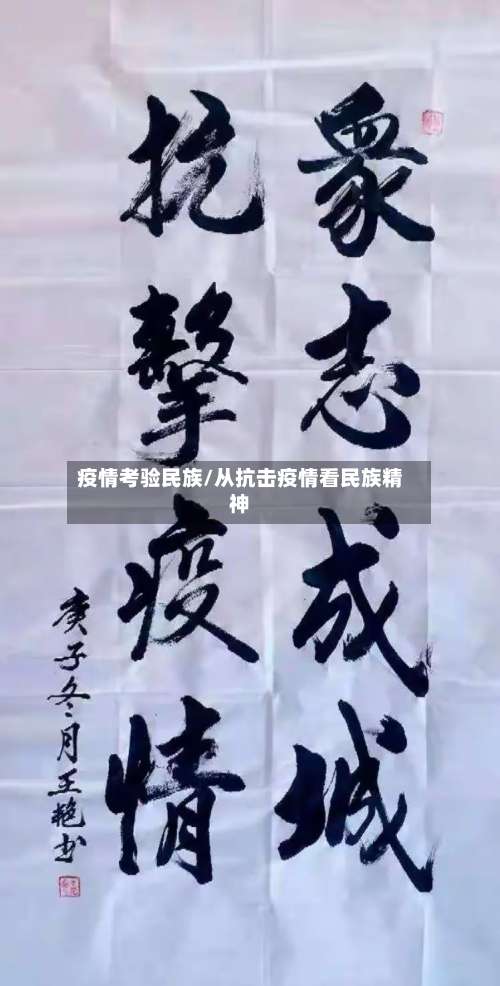 眾志成城
抗擊疫情
庚子冬月王艳书
疫情考验民族/从抗击疫情看民族精
神